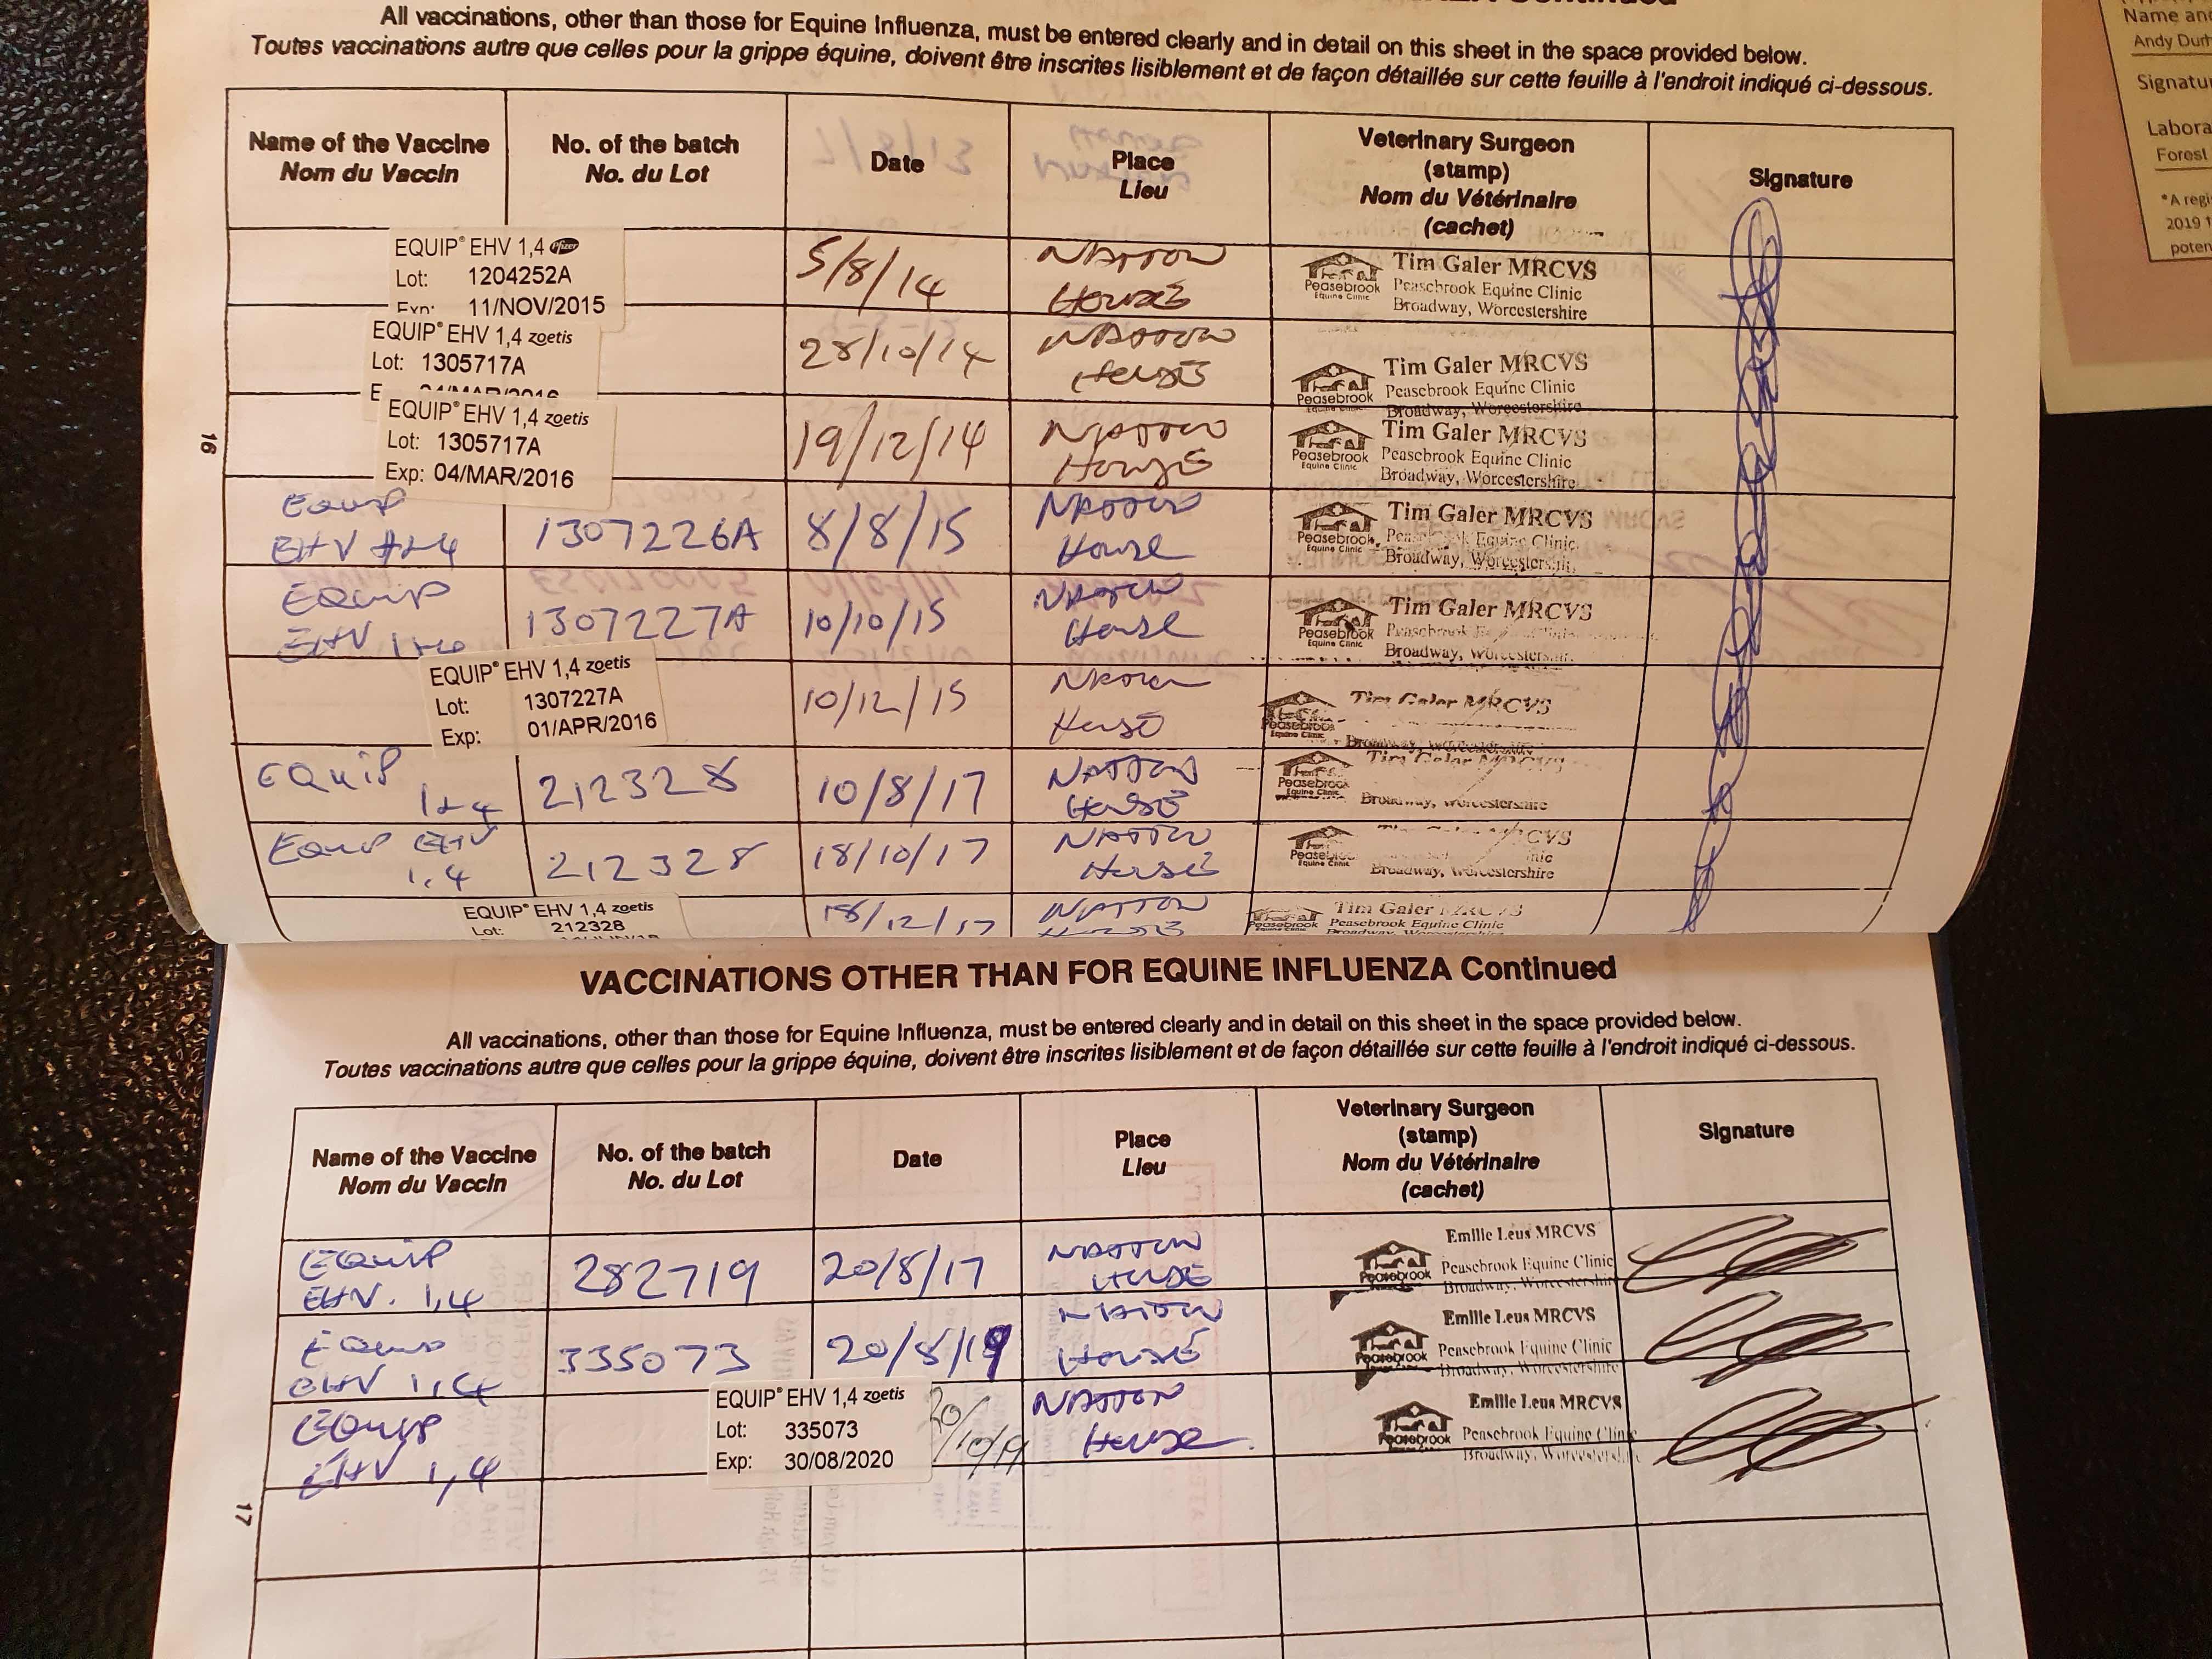 All vaccinations, other than those for Equine Influenza, must be entered clearly and in detail on this sheet in the space provided below.
Toutes vaccinations autre que celles pour la grippe équine, doivent être inscrites lisiblement et de façon détaillée sur cette feuille à l'endroit indiqué ci-dessous.
Name of the Vaccine
Nom du Vaccin
No. of the batch
No. du Lot
Date
Place
Lieu
Veterinary Surgeon
(stamp)
Nom du Vétérinaire
(cachet)
Signature
EQUIP® EHV 1,4 Pfizer
Lot: 1204252A
Exp: 11/NOV/2015
5/8/14
NATTON
HOUSE
Peasebrook
Equine Clinic
Tim Galer MRCVS
Peasebrook Equine Clinic
Broadway, Worcestershire
EQUIP® EHV 1,4 zoetis
Lot: 1305717A
28/10/14
NATTON
HOUSE
Peasebrook
Equine Clinic
Tim Galer MRCVS
Peasebrook Equine Clinic
Broadway, Worcestershire
EQUIP® EHV 1,4 zoetis
Lot: 1305717A
Exp: 04/MAR/2016
19/12/14
NATTON
HOUSE
Peasebrook
Equine Clinic
Tim Galer MRCVS
Peasebrook Equine Clinic
Broadway, Worcestershire
16
Equip
EHV 1+4
1307226A
8/8/15
NATTON
House
Peasebrook
Equine Clinic
Tim Galer MRCVS
Peasebrook Equine Clinic
Broadway, Worcestershire
EQUIP
EHV 1+4
1307227A
10/10/15
NATTON
House
Peasebrook
Equine Clinic
Tim Galer MRCVS
Peasebrook
Broadway, Worcestershire
EQUIP® EHV 1,4 zoetis
Lot: 1307227A
Exp: 01/APR/2016
10/12/15
NATTON
HOUSE
Peasebrook
Equine Clinic
Tim Galer MRCVS
Broadway, Worcestershire
EQUIP
1+4
212328
10/8/17
NATTON
HOUSE
Peasebrook
Equine Clinic
Tim Galer MRCVS
Broadway, Worcestershire
Equip EHV
1,4
212328
18/10/17
NATTON
HOUSE
Peasebrook
Equine Clinic
Broadway, Worcestershire
EQUIP® EHV 1,4 zoetis
Lot: 212328
18/12/17
NATTON
HOUSE
Peasebrook
Tim Galer MRCVS
Peasebrook Equine Clinic
VACCINATIONS OTHER THAN FOR EQUINE INFLUENZA Continued
All vaccinations, other than those for Equine Influenza, must be entered clearly and in detail on this sheet in the space provided below.
Toutes vaccinations autre que celles pour la grippe équine, doivent être inscrites lisiblement et de façon détaillée sur cette feuille à l'endroit indiqué ci-dessous.
Name of the Vaccine
Nom du Vaccin
No. of the batch
No. du Lot
Date
Place
Lieu
Veterinary Surgeon
(stamp)
Nom du Vétérinaire
(cachet)
Signature
EQUIP
EHV. 1,4
282719
20/8/17
NATTON
HOUSE
Peasebrook
Emilie Leus MRCVS
Peasebrook Equine Clinic
Broadway, Worcestershire
Equip
EHV 1,4
335073
20/8/19
NATTON
HOUSE
Peasebrook
Emilie Leus MRCVS
Peasebrook Equine Clinic
Broadway, Worcestershire
EQUIP
EHV 1,4
EQUIP® EHV 1,4 zoetis
Lot: 335073
Exp: 30/08/2020
20/
10/19
NATTON
House
Peasebrook
Emilie Leus MRCVS
Peasebrook Equine Clinic
Broadway, Worcestershire
17
Name and
Andy Durh
Signatur
Labora
Forest
*A regi
2019 t
poten